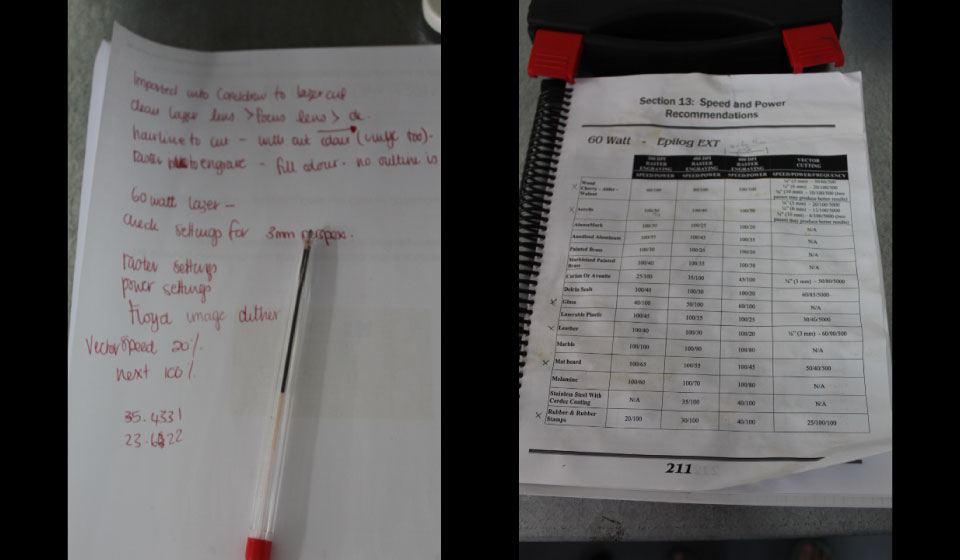 Imported into Coreldraw to laser cut
clean laser lens. > Focus lens > ok.
hairline to cut - with out colour (image too).
raster to engrave - fill colour. no outline is
60 watt laser -
check settings for 3mm perspex.
raster settings
power settings
Floyd image dither
Vector speed 20%.
next 100%.
35.4331
Section 13: Speed and Power
Recommendations
60 Watt - Epilog EXT
RASTER ENGRAVING RASTER ENGRAVING RASTER ENGRAVING VECTOR CUTTING
SPEED/POWER SPEED/POWER SPEED/POWER SPEED/POWER/FREQUENCY
Wood Cherry - Alder - Walnut
Acrylic
AlumaMark 100/25 100/20 N/A
Anodized Aluminum N/A
Painted Brass N/A
Marbleized Painted Brass 100/40 100/35 100/30 N/A
Corian Or Avonite 25/100 35/100 45/100 ⅛" (3 mm) - 90/80/5000
Delrin Seals 100/40 100/30 100/20
x Glass 40/100 50/100 60/100 N/A
Laserable Plastic 100/45 100/35 100/25
x Leather 100/40 100/30 100/20 ⅛" (3 mm) - 60/90/500
Marble 100/100 100/90 100/80 N/A
x Mat board 100/65 100/55 100/45 50/40/500
Melamine 100/60 100/70 100/80 N/A
Stainless Steel With Cerdec Coating N/A 35/100 40/100 N/A
x Rubber & Rubber Stamps 20/100 30/100 40/100 25/100/100
211